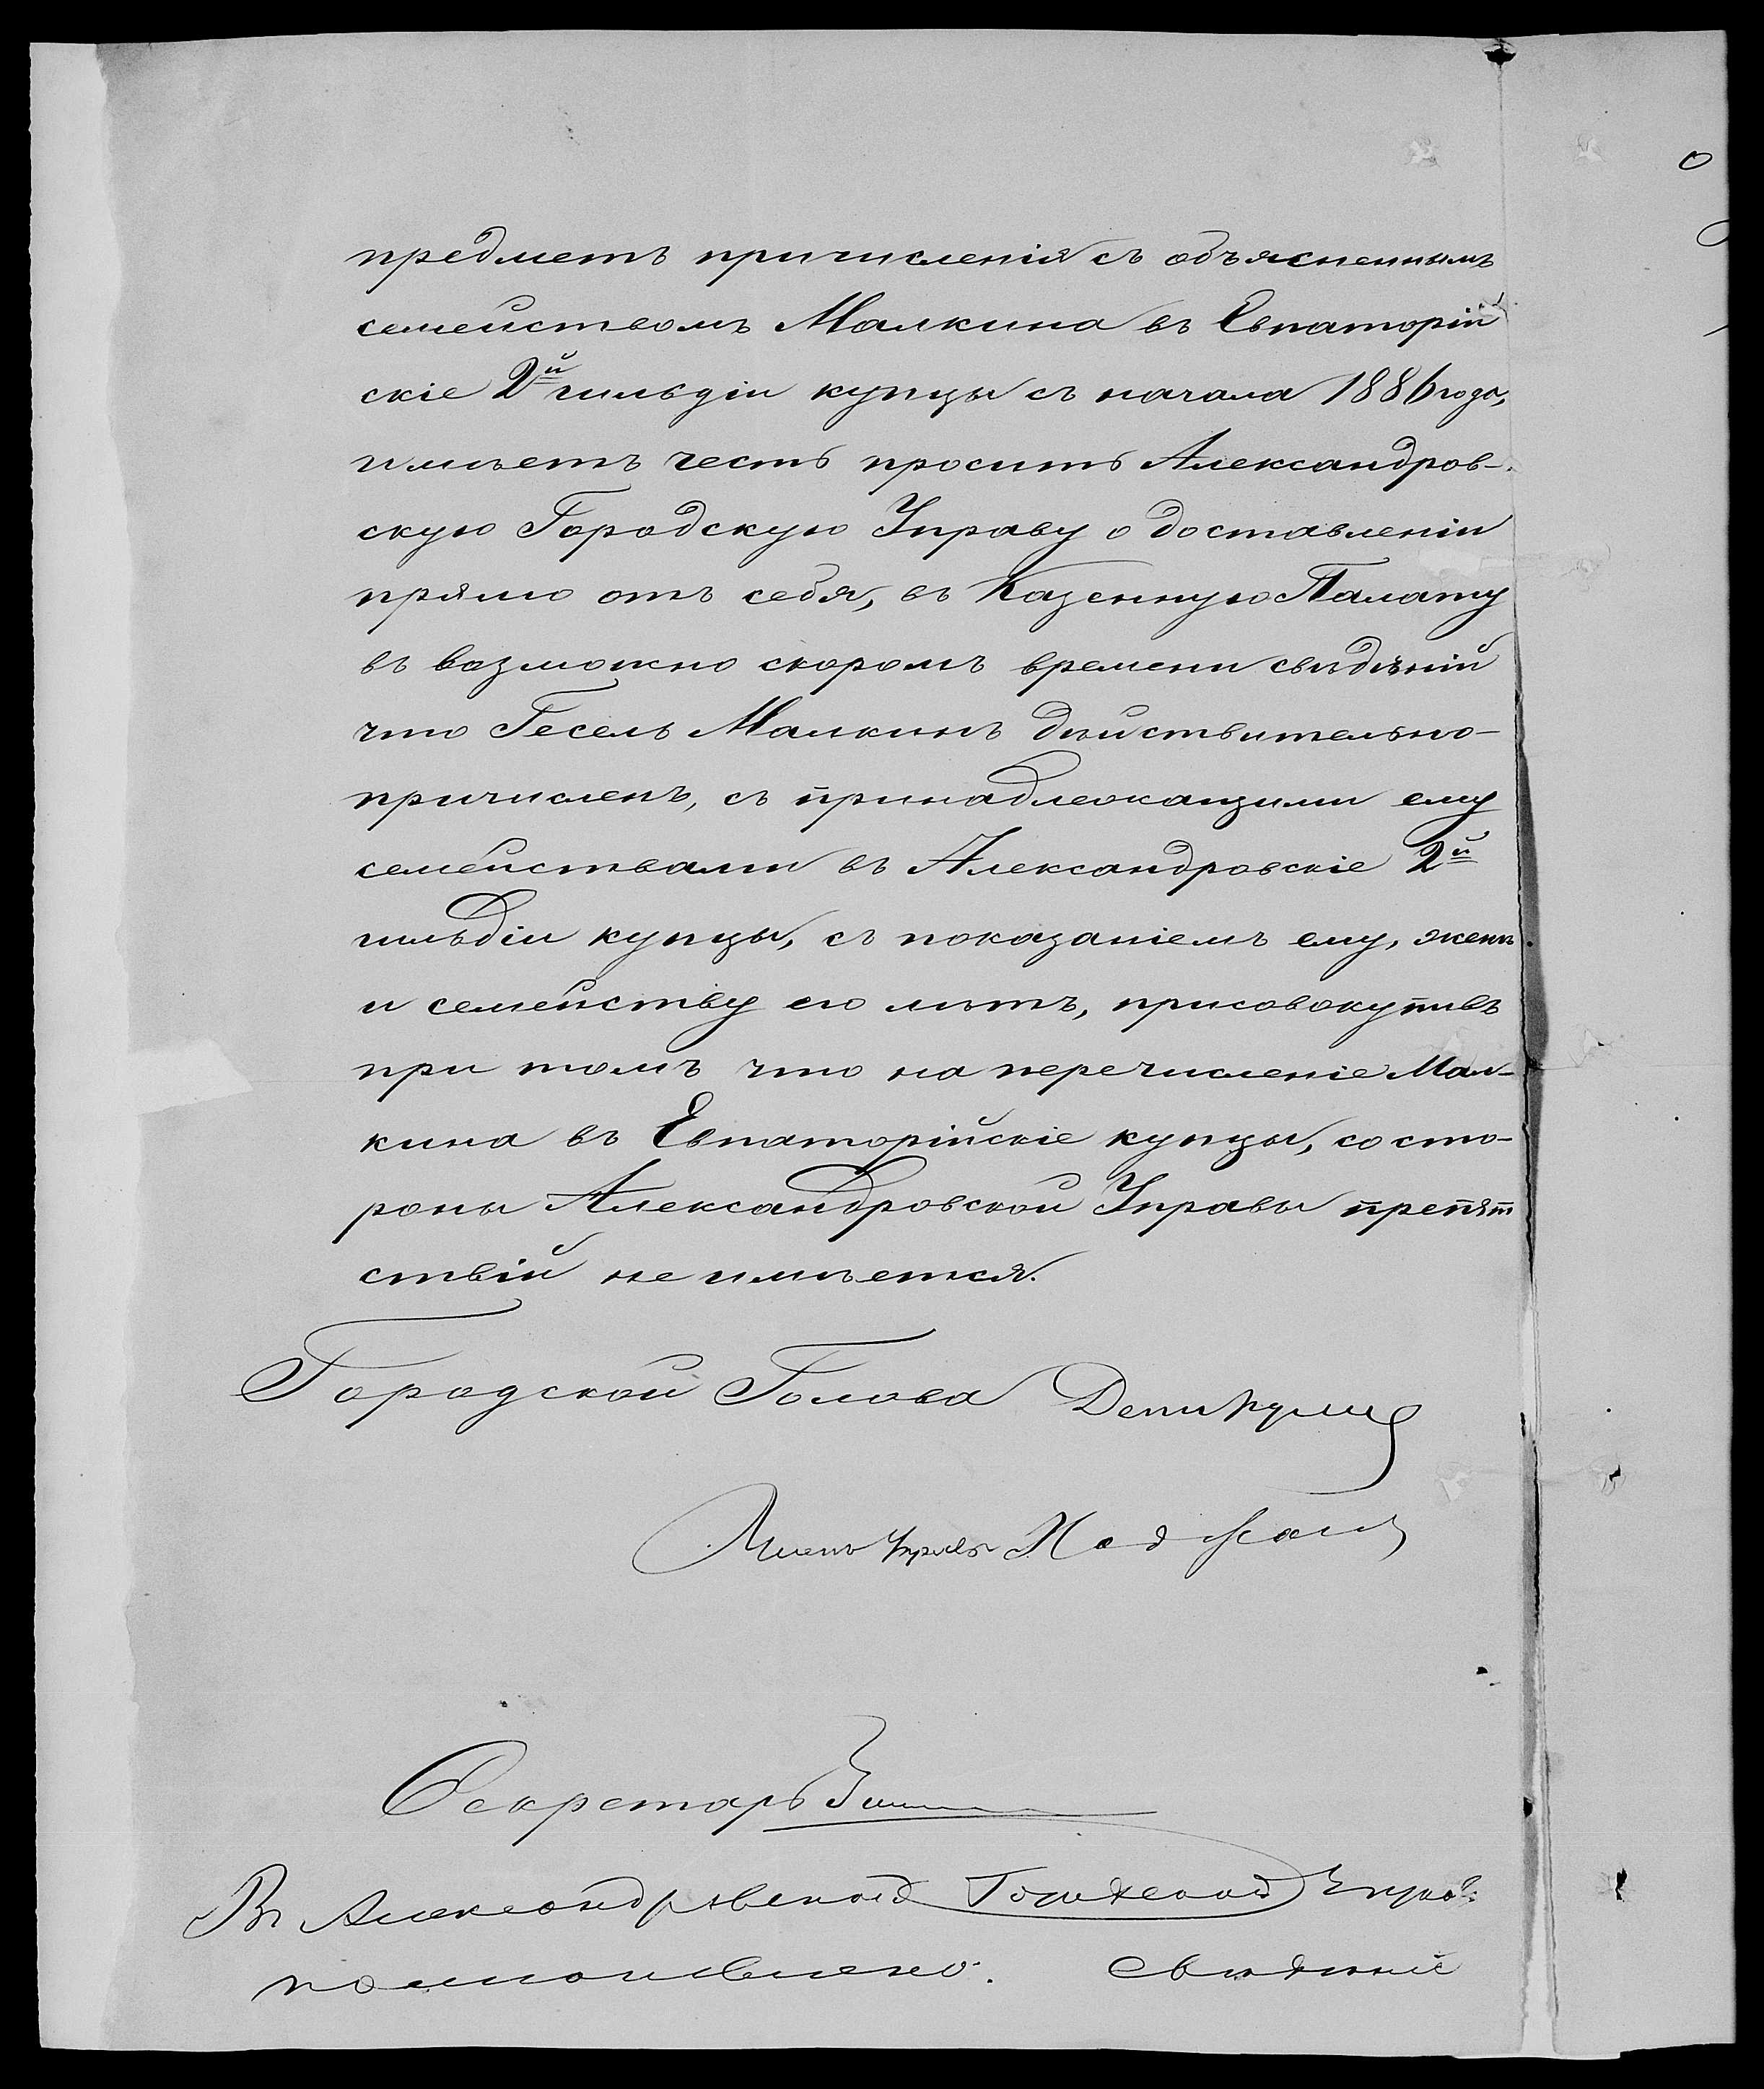 предметъ причисленія съ объясненнымъ
семействомъ Малкина въ Евпаторій
скіе 2й гильдіи купцы съ начала 1886 года,
имѣетъ честь просить Александров-
скую Городскую Управу о доставленіи
прямо отъ себя, въ Казенную Палату
въ возможно скоромъ времени свѣдѣній
что Гесель Малкинъ дѣйствительно
причисленъ, съ принадлежащими ему
семействами въ Александровскіе 2й
гильдіи купцы, съ показаніемъ ему, женѣ
и семейству его лѣтъ, присовокупивъ
при томъ что на перечисленіе Мал-
кина въ Евпаторійскіе купцы, со сто-
роны Александровской Управы препят
ствій не имѣется.
Городской Голова
Членъ Управы
Секретарь
Въ Александровской Городской Управ.
постановлено. свѣдѣніе